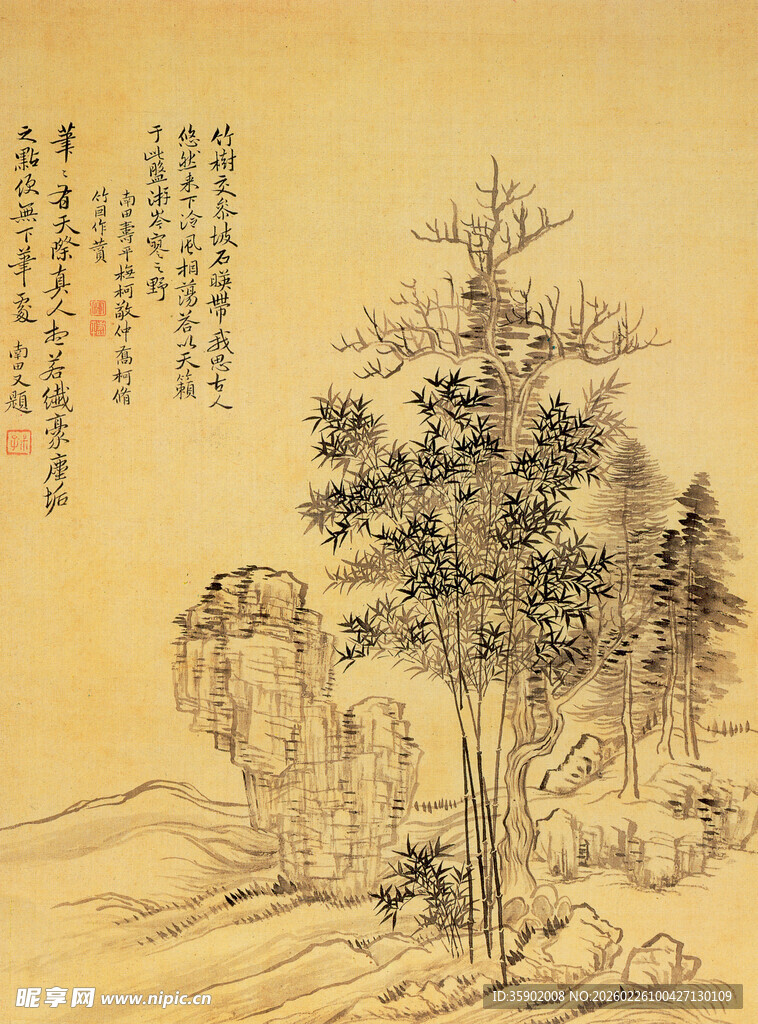 竹樹交參坡石暎帶我思古人
悠然来下泠風相蕩答以天籟
于此盤游岑寥之野
南田壽平橅柯敬仲舊柯脩
竹因作贊
筆〻有天際真人想若纖豪塵垢
之點便無下筆處
南田又題
昵享网 www.nipic.cn
ID:35902008 NO:20260226100427130109